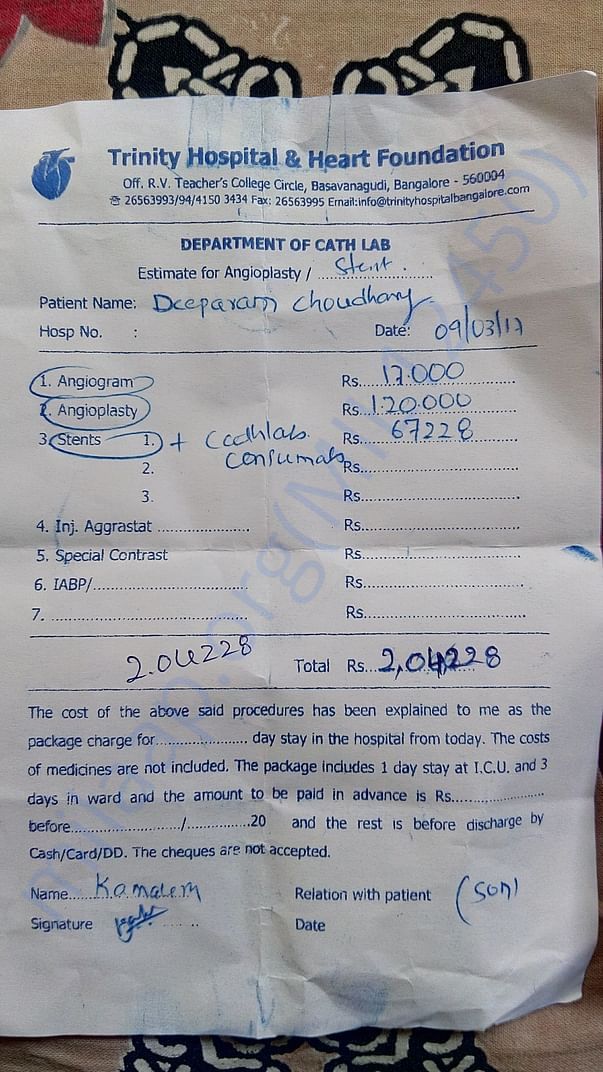 Trinity Hospital & Heart Foundation
Off. R.V. Teacher's College Circle, Basavanagudi, Bangalore - 560004
☎ 26563993/94/4150 3434 Fax: 26563995 Email:info@trinityhospitalbangalore.com
DEPARTMENT OF CATH LAB
Estimate for Angioplasty / Stent.
Patient Name: Deeparam Choudhary
Hosp No. : Date: 09/03/17
1. Angiogram Rs. 17.000
2. Angioplasty Rs. 1.20.000
3. Stents 1. + Cathlab Rs. 67228
2. consumab Rs.
3. Rs.
4. Inj. Aggrastat Rs.
5. Special Contrast Rs.
6. IABP/ Rs.
7. Rs.
2.04228 Total Rs. 2,04228
The cost of the above said procedures has been explained to me as the
package charge for.................... day stay in the hospital from today. The costs
of medicines are not included. The package includes 1 day stay at I.C.U. and 3
days in ward and the amount to be paid in advance is Rs....................
before..................../....................20 and the rest is before discharge by
Cash/Card/DD. The cheques are not accepted.
Name Kamalem Relation with patient (son)
Signature Date